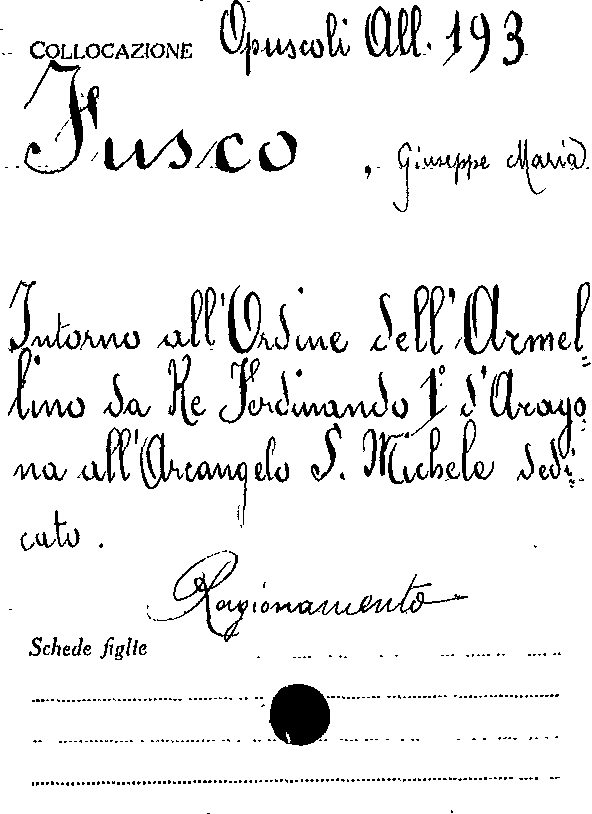 COLLOCAZIONE Opuscoli All. 193
Fusco, Giuseppe Maria
Intorno all'Ordine dell'Armel=
lino da Re Ferdinando 1º d'Arago=
na all'Arcangelo S. Michele dedi=
cato.
Ragionamento
Schede figlie